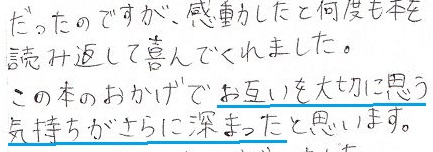 だったのですが、感動したと何度も本を
読み返して喜んでくれました。
この本のおかげでお互いを大切に思う
気持ちがさらに深まったと思います。